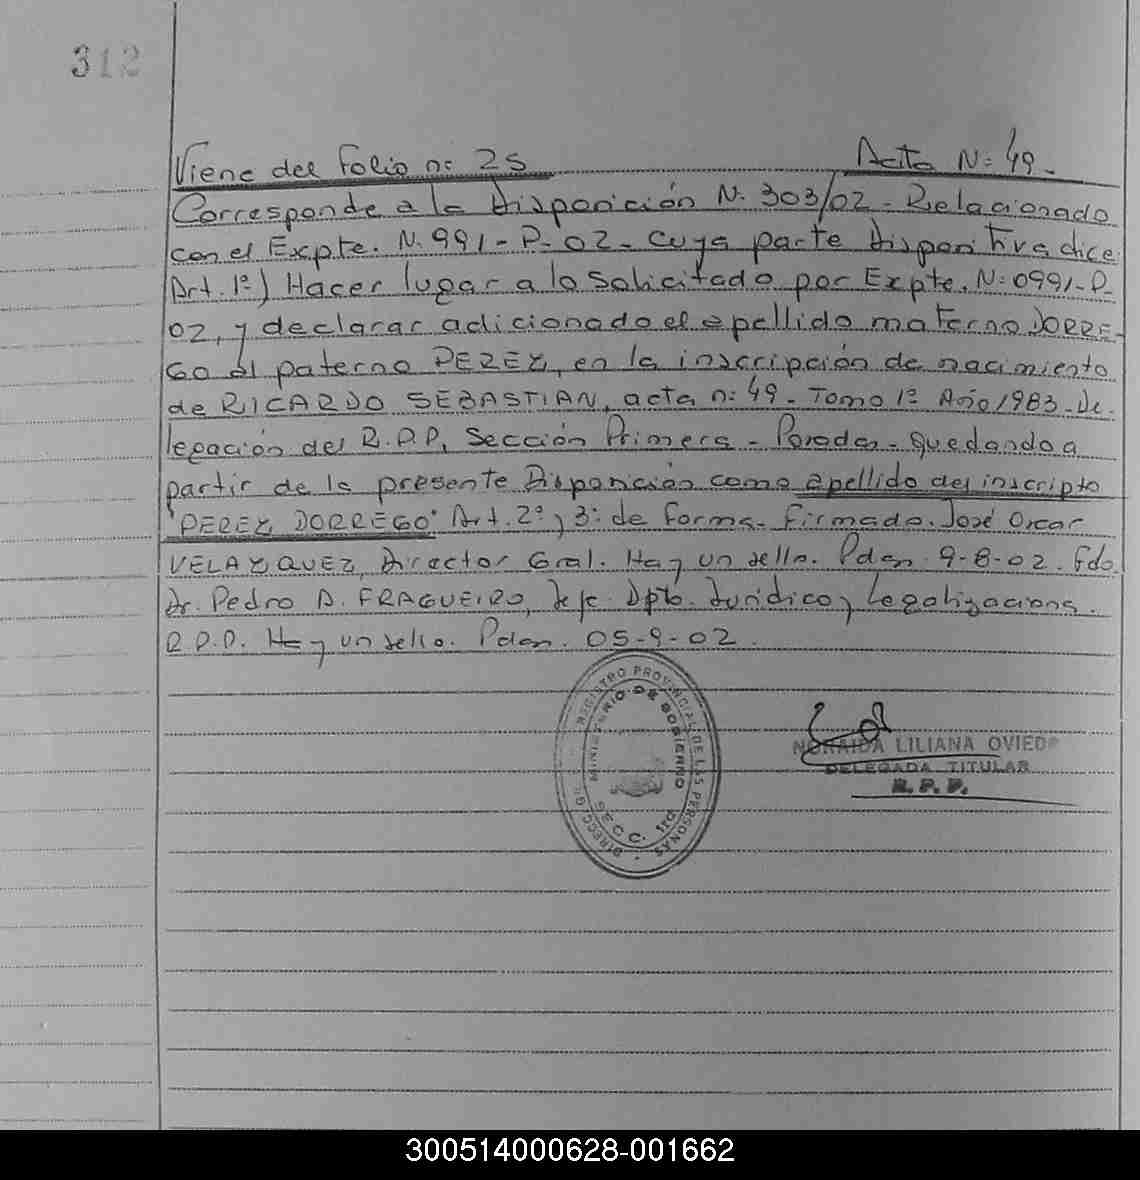 312
Viene del Folio n: 25 Acta N: 49.
Corresponde a la Disposición N. 303/02 - Relacionado
con el Expte. N. 991-P-02- cuya parte dispositiva dice
Art. 1º) Hacer lugar a lo solicitado por Expte. N: 0991-P-
02, y declarar adicionado el apellido materno DORRE-
GO al paterno PEREZ, en la inscripción de nacimiento
de RICARDO SEBASTIAN, acta n: 49- Tomo 1º Año 1983- De-
legación del R.P.P, Sección Primera - Posadas - quedando a
partir de la presente Disposición como apellido del inscripto
"PEREZ DORREGO" Art. 2º y 3: de forma. Firmado. José Oscar
VELAZQUEZ, Director Gral. Hay un sello. Pdas. 9-8-02. Fdo.
Dr. Pedro A. FRAGUEIRO, Jefe Dpto. Jurídico y Legalizacions.
R.P.P. Hay un sello. Pdas. 05-9-02.
REGISTRO PROVINCIAL DE LAS PERSONAS
MINISTERIO DE GOBIERNO
SECC. 1ra
NORAIDA LILIANA OVIEDO
DELEGADA TITULAR
R. P. P.
300514000628-001662